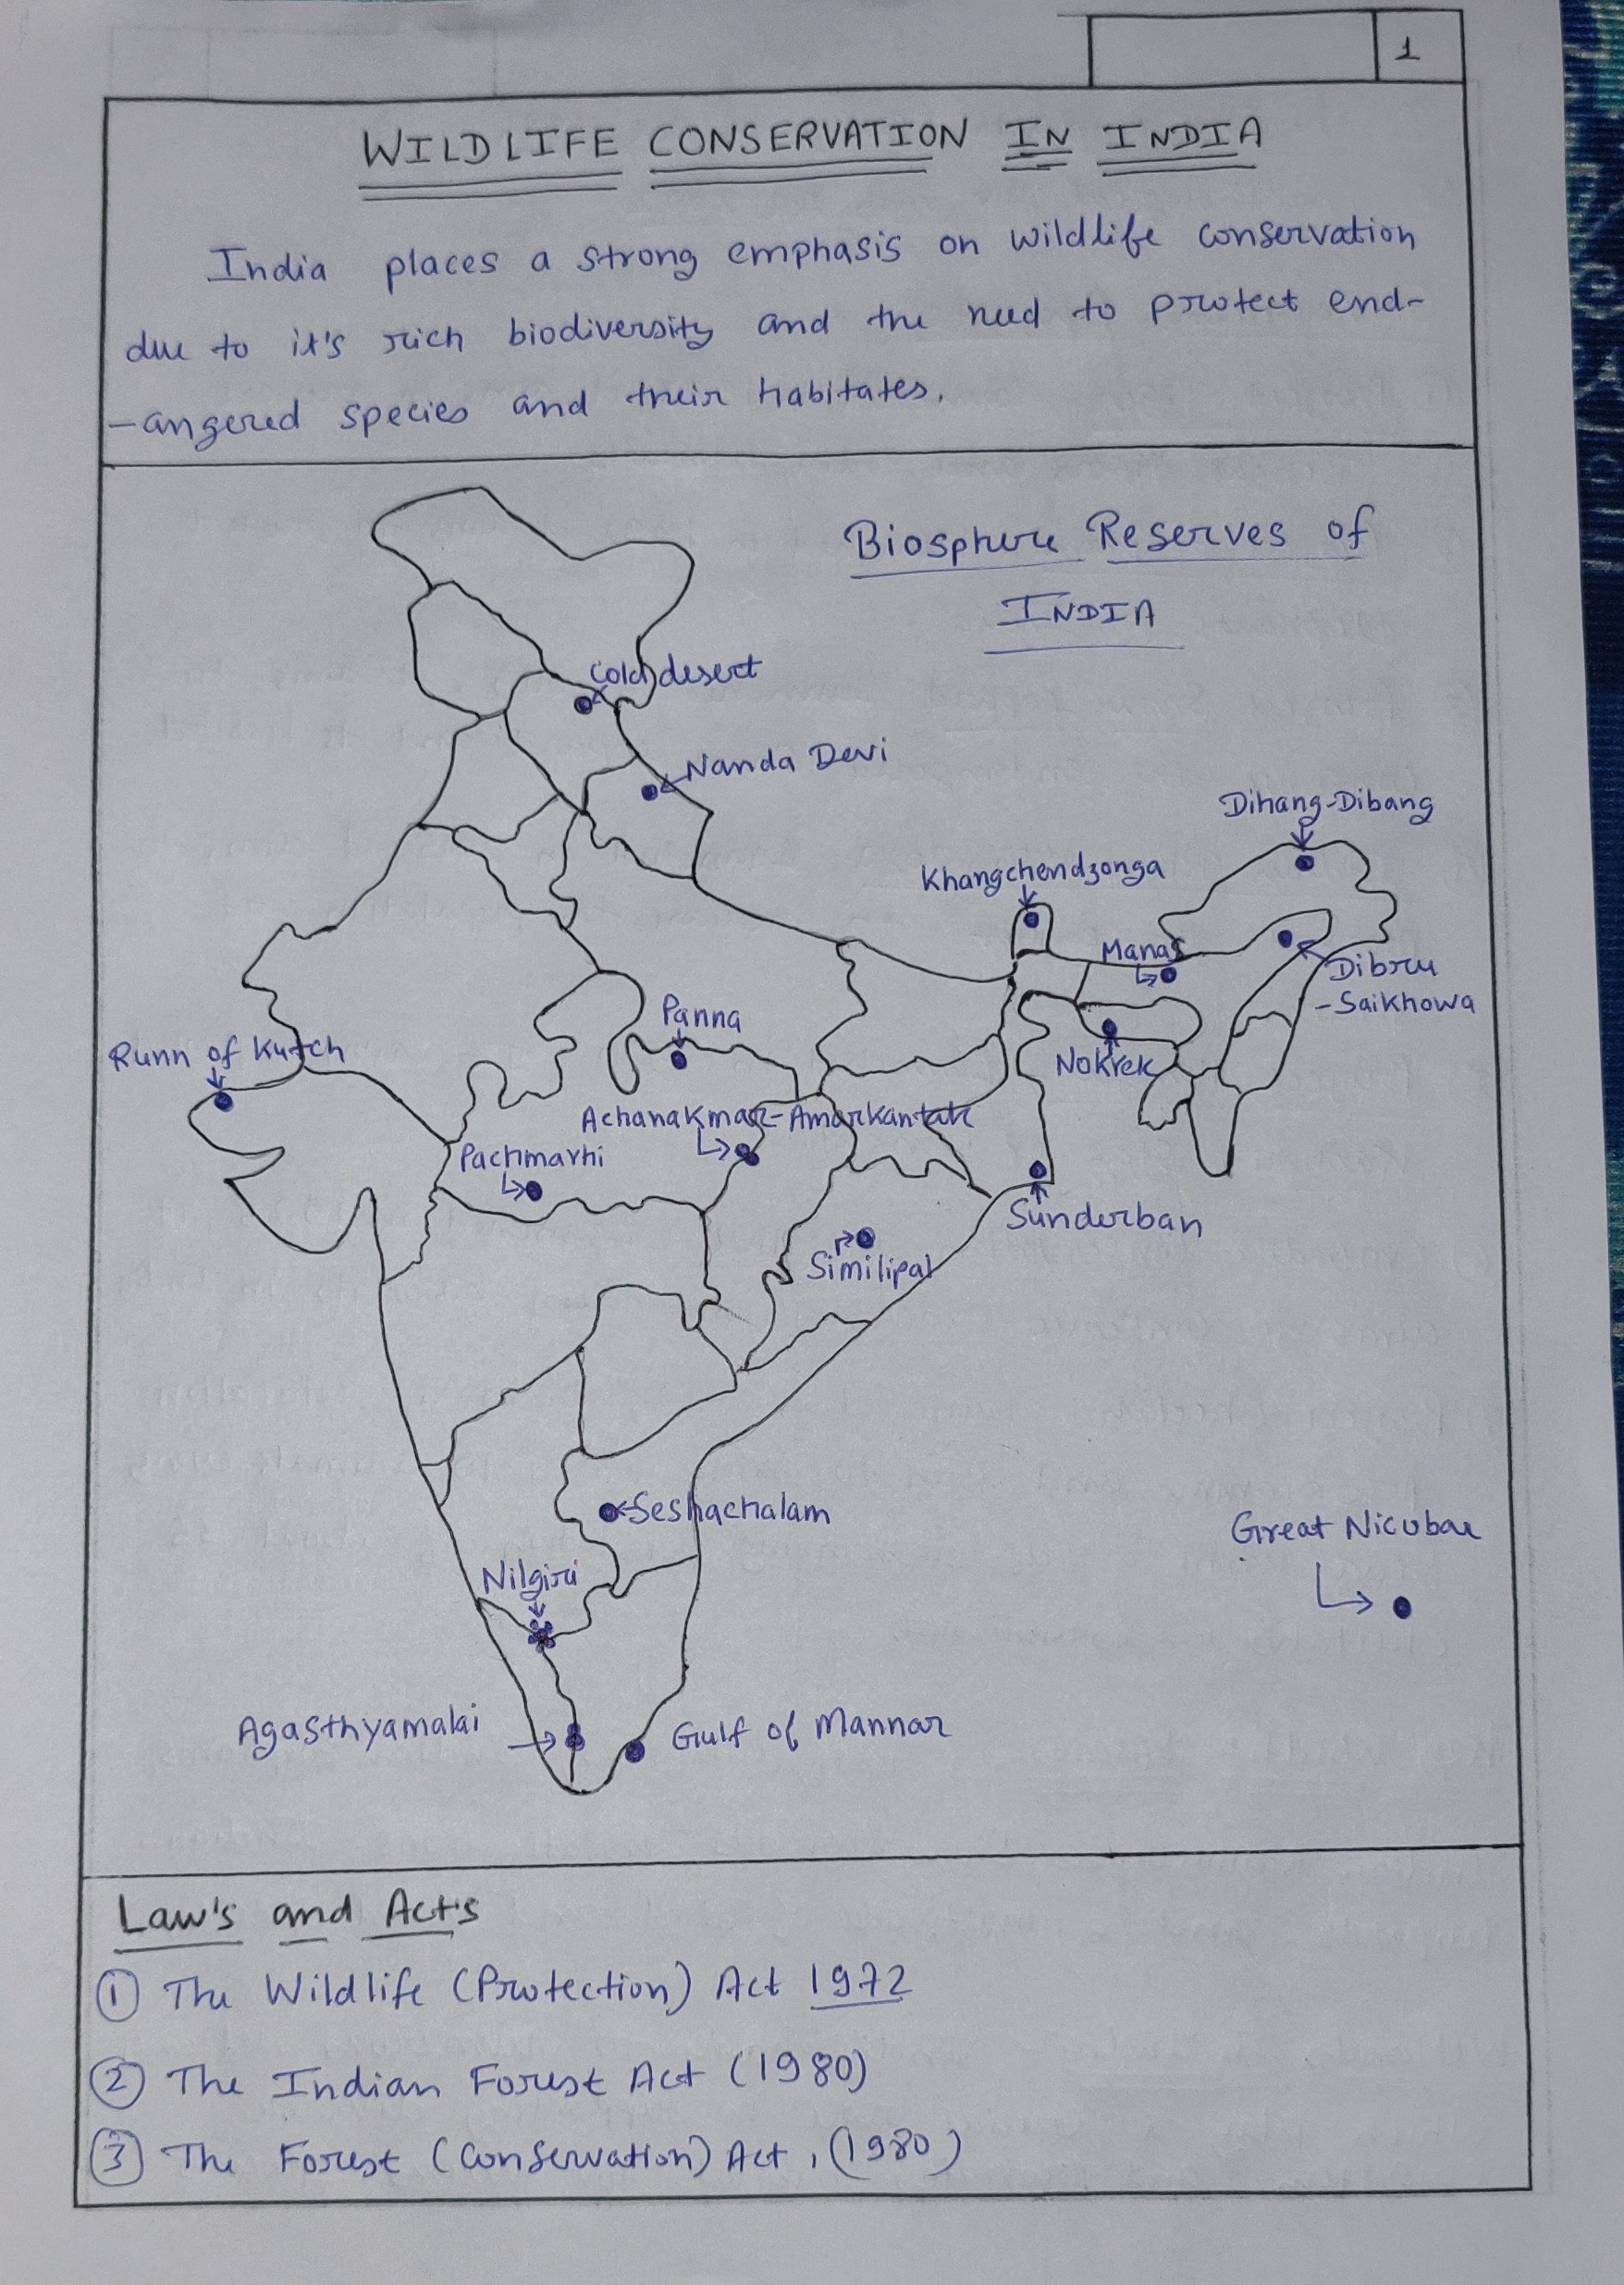 1
WILDLIFE CONSERVATION IN INDIA
India places a strong emphasis on wildlife conservation
due to it's rich biodiversity and the need to protect end-
-angered species and their habitates.
Biosphere Reserves of
INDIA
Cold desert
Nanda Devi
Dihang-Dibang
Khangchendzonga
Manas
Dibru
-Saikhowa
Panna
Runn of Kutch
Nokrek
Achanakmar-Amarkantak
Pachmarhi
Sunderban
Similipal
Seshachalam
Great Nicobar
Nilgiri
Agasthyamalai
Gulf of Mannar
Law's and Act's
① The Wildlife (Protection) Act 1972
② The Indian Forest Act (1980)
③ The Forest (Conservation) Act, (1980)